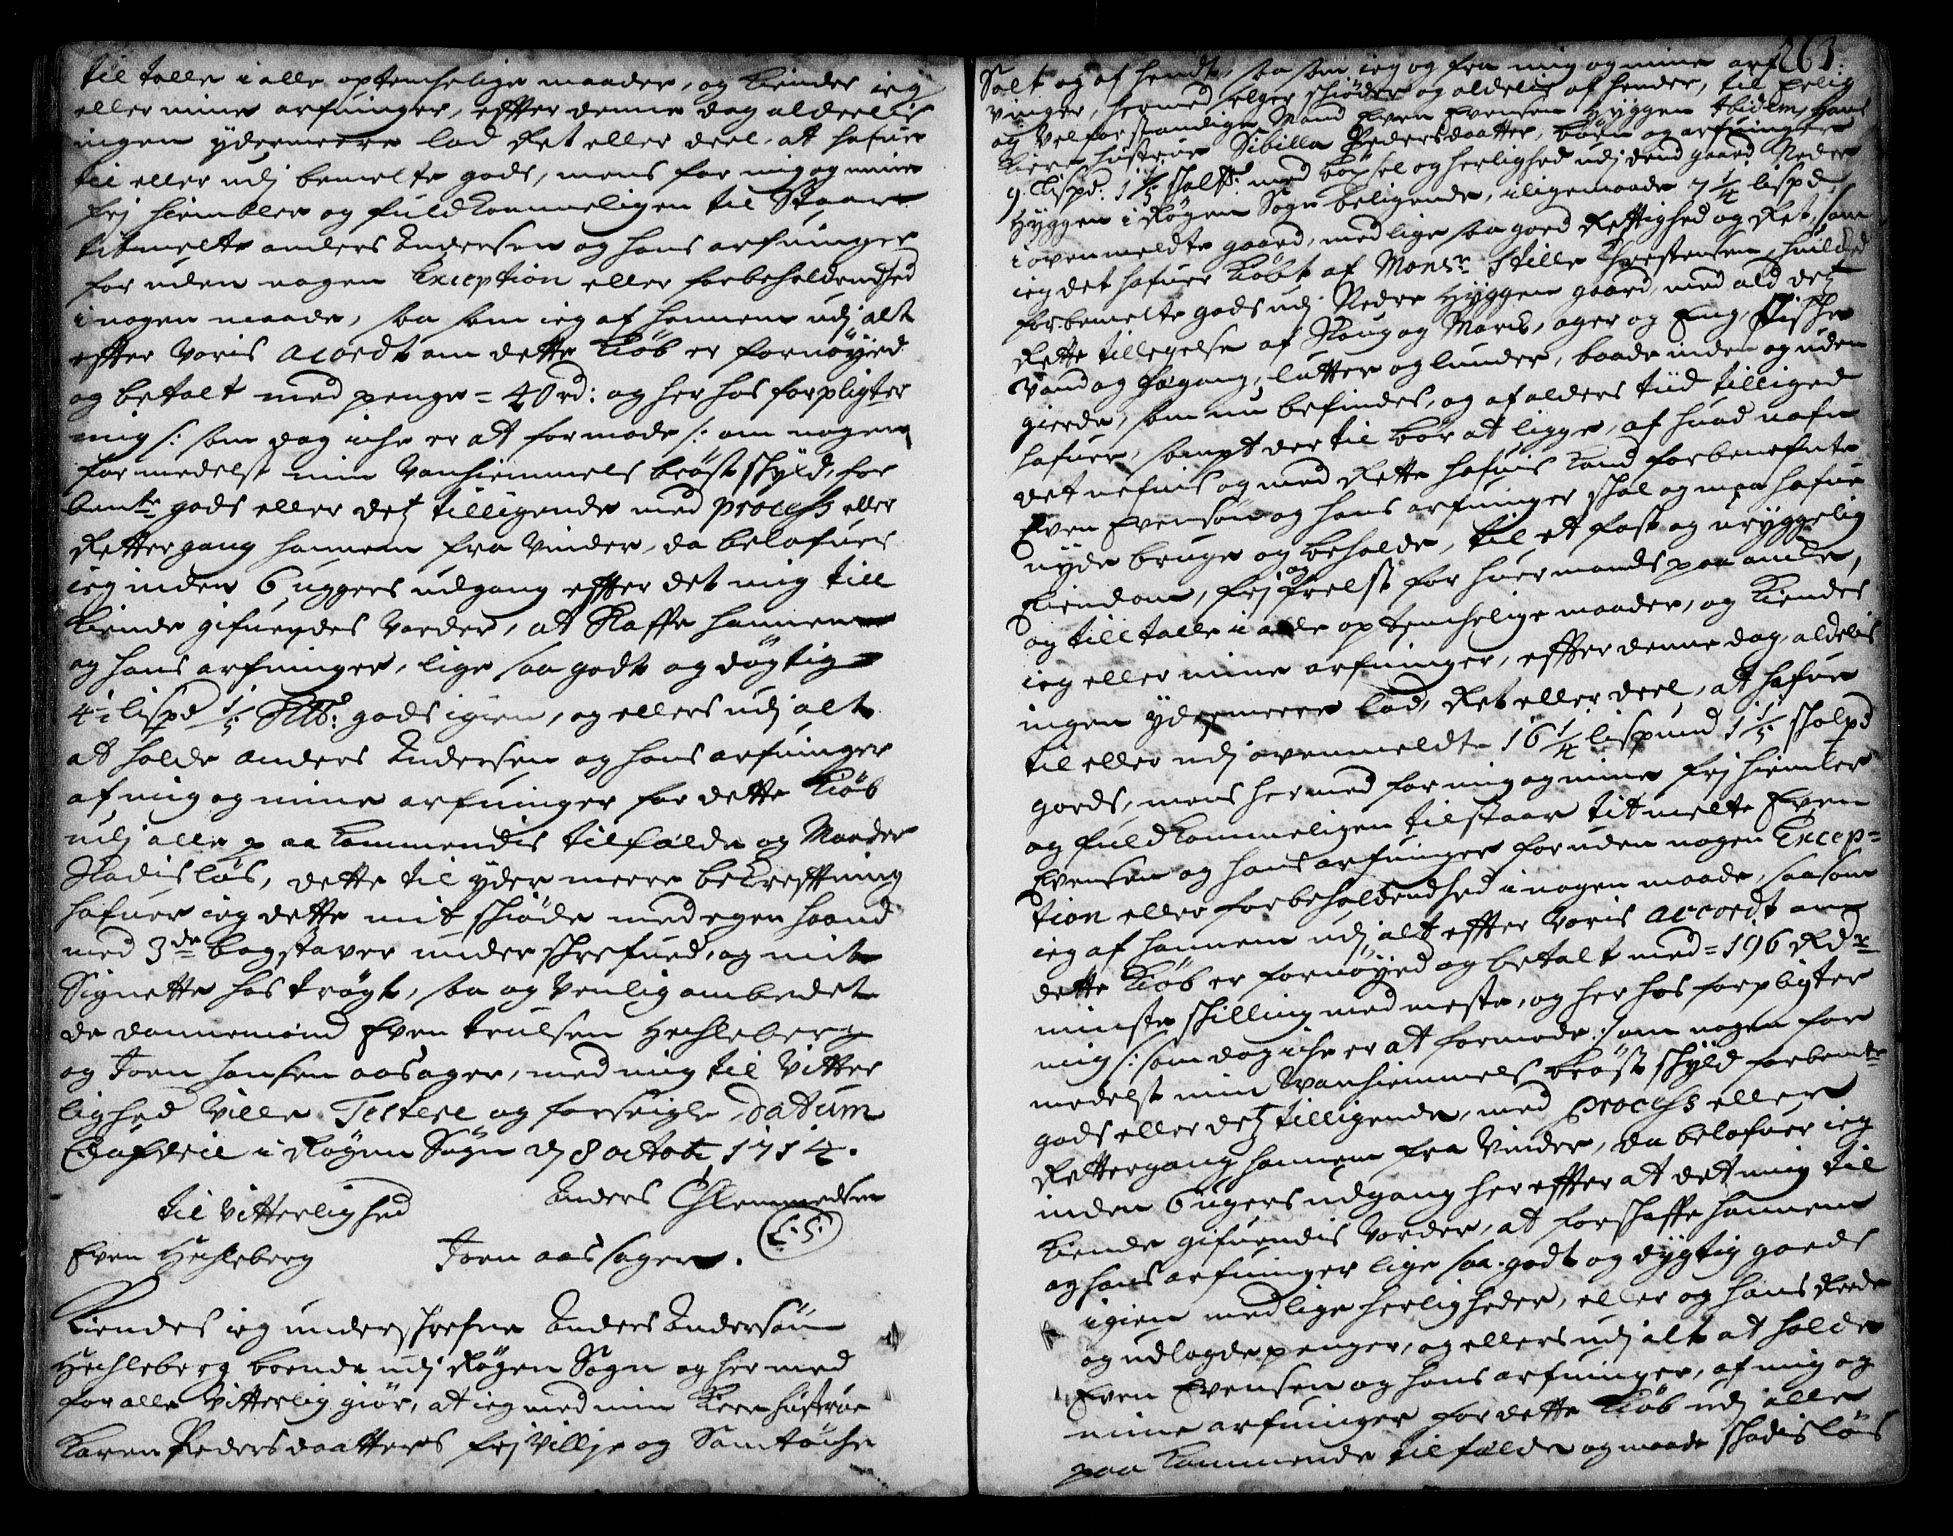 til talle i alle optenchelige maader, og kiender ieg
eller mine arfvinger, effter denne dag alderlis
ingen ydermeere lod Ret eller deel, at hafue
til eller udj bemelte gods, mens for mig og mine
frj hiembler og fuldkommeligen til Staar
titmelte anders Andersen og hans arfvinger
for uden nogen Exception eller forbeholdendhed
i nogen maade, saa som ieg af hannem udj alt
effter voris acordt om dette Kiøb er fornøyed
og betalt med penge = 40 rd: og her hos forpligter
mig /: som dog iche er at formode :/ om nogen
formedelst min Vanhiemmels brøst skyld, for
bemte gods eller detz tilligende med process eller
Rettergang hannem fra Vinder, da belofues
ieg inden 6 uggers udgang effter det mig till
kiende gifuendes vorder, at Skaffe hannem
og hans arfvinger, lige saa godt og døgtig
4½ lispd 1/5 Sk℔: gods igien, og ellers udj alt
at holde anders Andersen og hans arfvinger
af mig og mine arfvinger for dette Kiøb
udj alle paa kommendis tilfælde og Maader
Skadisløs, dette til yder meere bekrefftning
hafuer ieg dette mit skiøde med egen haand
med 3de bogstaver under skrefued, og mit
Signette hos trøgt, saa og venlig ombedet
de dannemænd Even trulsen Hechleberg
og Joen hansen aasager, med mig til Vitter
lighed ville Testere og forseigle, Datum
i Røgen Sogn d 8 octobr 1714.
til Vitterlighed
Anders Clemmedsen
Even Hechleberg
Joen aassagen.
L.S.
Kiendes ieg underskrefne Anders Andersøn
Hechleberg boende udj Røgen Sogn og her med
for alle Vitterlig giør, at ieg med min kiere hustrue
Karen Pedersdaatters frj Villje og Samtøche
263.
Solt og af hendt, saa som ieg og fra mig og mine arf
vinger, hermed selger skiøder og aldelis af hender, til Erlig
og Velforstandige Mand Even Evensen Hyggen ibidem, hans
kiere hustrue Sibilla Pedersdaatter, børn og arfvinger
9 lispd: 1 1/5 skal℔: med bøxel og herlighed udj dend gaard Neder
Hyggen i Røgen Sogn beligende, i ligemaade 7 1/4 lispd
i ovenmeldte gaard, med lige saa goed Rettighed og Ret, som
ieg det hafuer kiøbt af Monsr Stille Christensen, huilched
forbemelte gods udj Nedre Hyggen gaard, med ald detz
Rette tilleyelse af Skoug og March, ager og Eng, Fische
Vand og fægang, lutter og lunder, baade inden og uden
gierde, som nu befindes, og af alders tiid tilliged
hafuer, sampt der til bør at ligge, af huad nafn
det nefnis og med Rette hafuis kand forbenefnte
Even Evensøn og hans arfvinger skal og maa hafue
nyde bruge og beholde, til et fast og uryggelig
Eiendom, frj og frelst for huermands paa anche,
og till talle i alle optenchelige maader, og kiendes
ieg eller mine arfvinger, effter denne dag, aldelis
ingen ydermeere lod, Ret eller deel, at hafue
til eller udj ovenmeldte 16 1/4 lispund 1 1/5 skalpd
gords, mens hermed for mig og mine frj hiemler
og fuldkommeligen tilstaar titmelte Even
Evensen og hans arfvinger foruden nogen Excep=
tion eller forbeholdendhed i nogen maade, saa som
ieg af hannem udj alt effter voris accordt om
dette Kiøb er fornøyed og betalt med = 196 Rdr
minste skilling med meste, og her hos forpligter
mig /: som dog iche er at formode :/ om nogen for
medelst min Vanhiemmels brøst skyld forbemte
gods eller detz tilligende, med process eller
Rettergang hannem fra Vinder, da belofuer ieg
inden 6 ugers udgang her effter at det mig til
kiende gifuendis vorder, at forskaffe hannem
og hans arfvinger lige saa godt og dygtig goeds
igien med lige herligheder, eller og hans Rede
og udlagde penger, og ellers udj alt at holde
Even Evensen og hans arfvinger, af mig og
mine arfvinger for dette Kiøb udj alle
paa kommende tilfælde og maade skadisløs